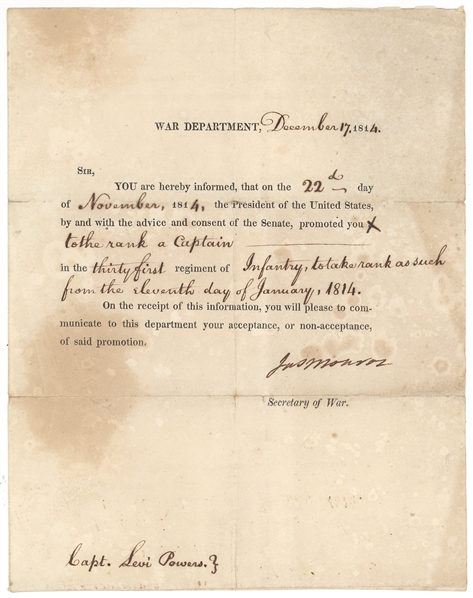 WAR DEPARTMENT, December 17. 1814.
SIR,
YOU are hereby informed, that on the 22d day
of November, 1814, the President of the United States,
by and with the advice and consent of the Senate, promoted you X
to the rank a Captain
in the thirty first regiment of Infantry, to take rank as such
from the eleventh day of January, 1814.
On the receipt of this information, you will please to com-
municate to this department your acceptance, or non-acceptance,
of said promotion.
Jas Monroe
Secretary of War.
Capt. Levi Powers. }